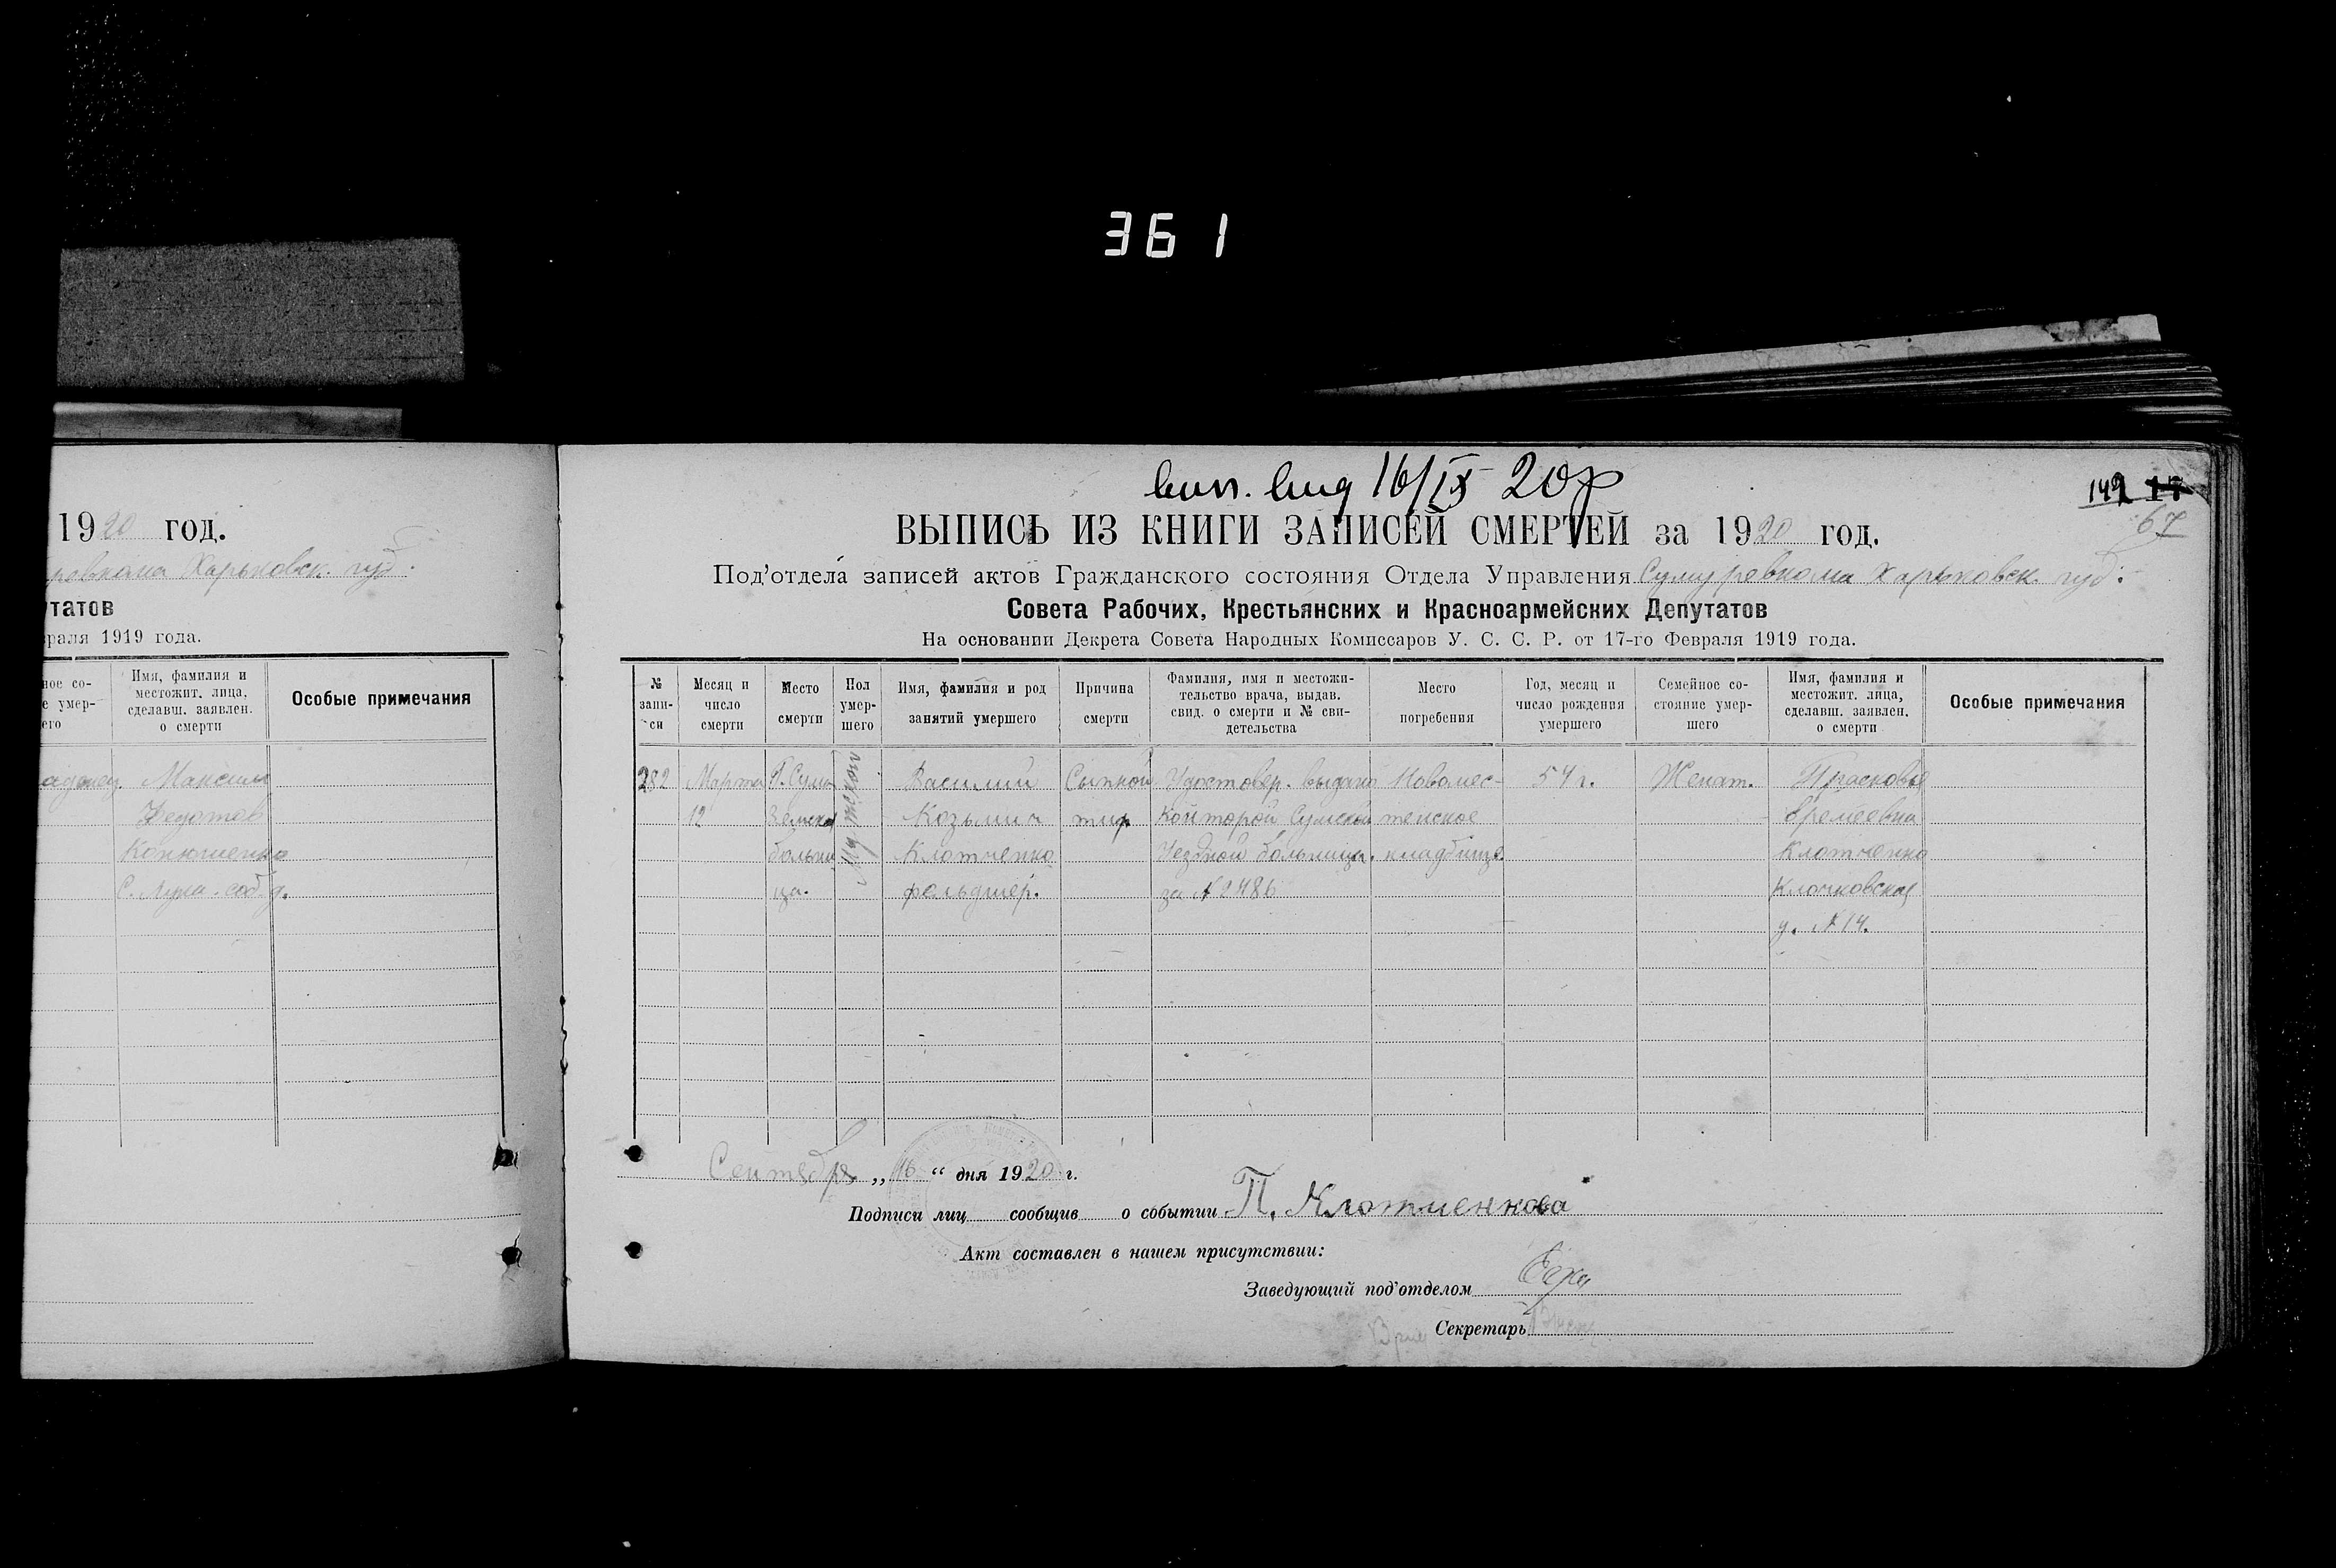 361
1920 год.
ревкома Харьковск. губ.
утатов
враля 1919 года.
ное со-
е умер-
его
Имя, фамилия и
местожит. лица,
сделавш. заявлен.
о смерти
Особые примечания
Максим
Федотов
Конюшенко
16/IX 20 г
142 17
67
ВЫПИСЬ ИЗ КНИГИ ЗАПИСЕЙ СМЕРТЕЙ за 1920 год.
Под'отдела записей актов Гражданского состояния Отдела Управления Сумуревкома Харьковск. губ.
Совета Рабочих, Крестьянских и Красноармейских Депутатов
На основании Декрета Совета Народных Комиссаров У. С. С. Р. от 17-го Февраля 1919 года.
№
запи-
си
Месяц и
число
смерти
Место
смерти
Пол
умер-
шего
Имя, фамилия и род
занятий умершего
Причина
смерти
Фамилия, имя и местожи-
тельство врача, выдав.
свид. о смерти и № сви-
детельства
Место
погребения
Год, месяц и
число рождения
умершего
Семейное со-
стояние умер-
шего
Имя, фамилия и
местожит. лица,
сделавш. заявлен.
о смерти
Особые примечания
282
Марта
12
Г. Сумы
Земская
больни
ца.
Мужской
Василий
Козьмич
Клотченко
фельдшер.
Сыпной
тиф
Удостовер. выдано
Конторой Сумской
Уездной больницы
за №2486
Новомес-
тенское
кладбище
54 г.
Женат.
Прасковья
Еремеевна
Клотченко
Клочковская
у. №14.
Сентября „16“ дня 1920 г.
Подписи лиц сообщив о событии П. Клотченкова
Акт составлен в нашем присутствии:
Заведующий под'отделом
Секретарь